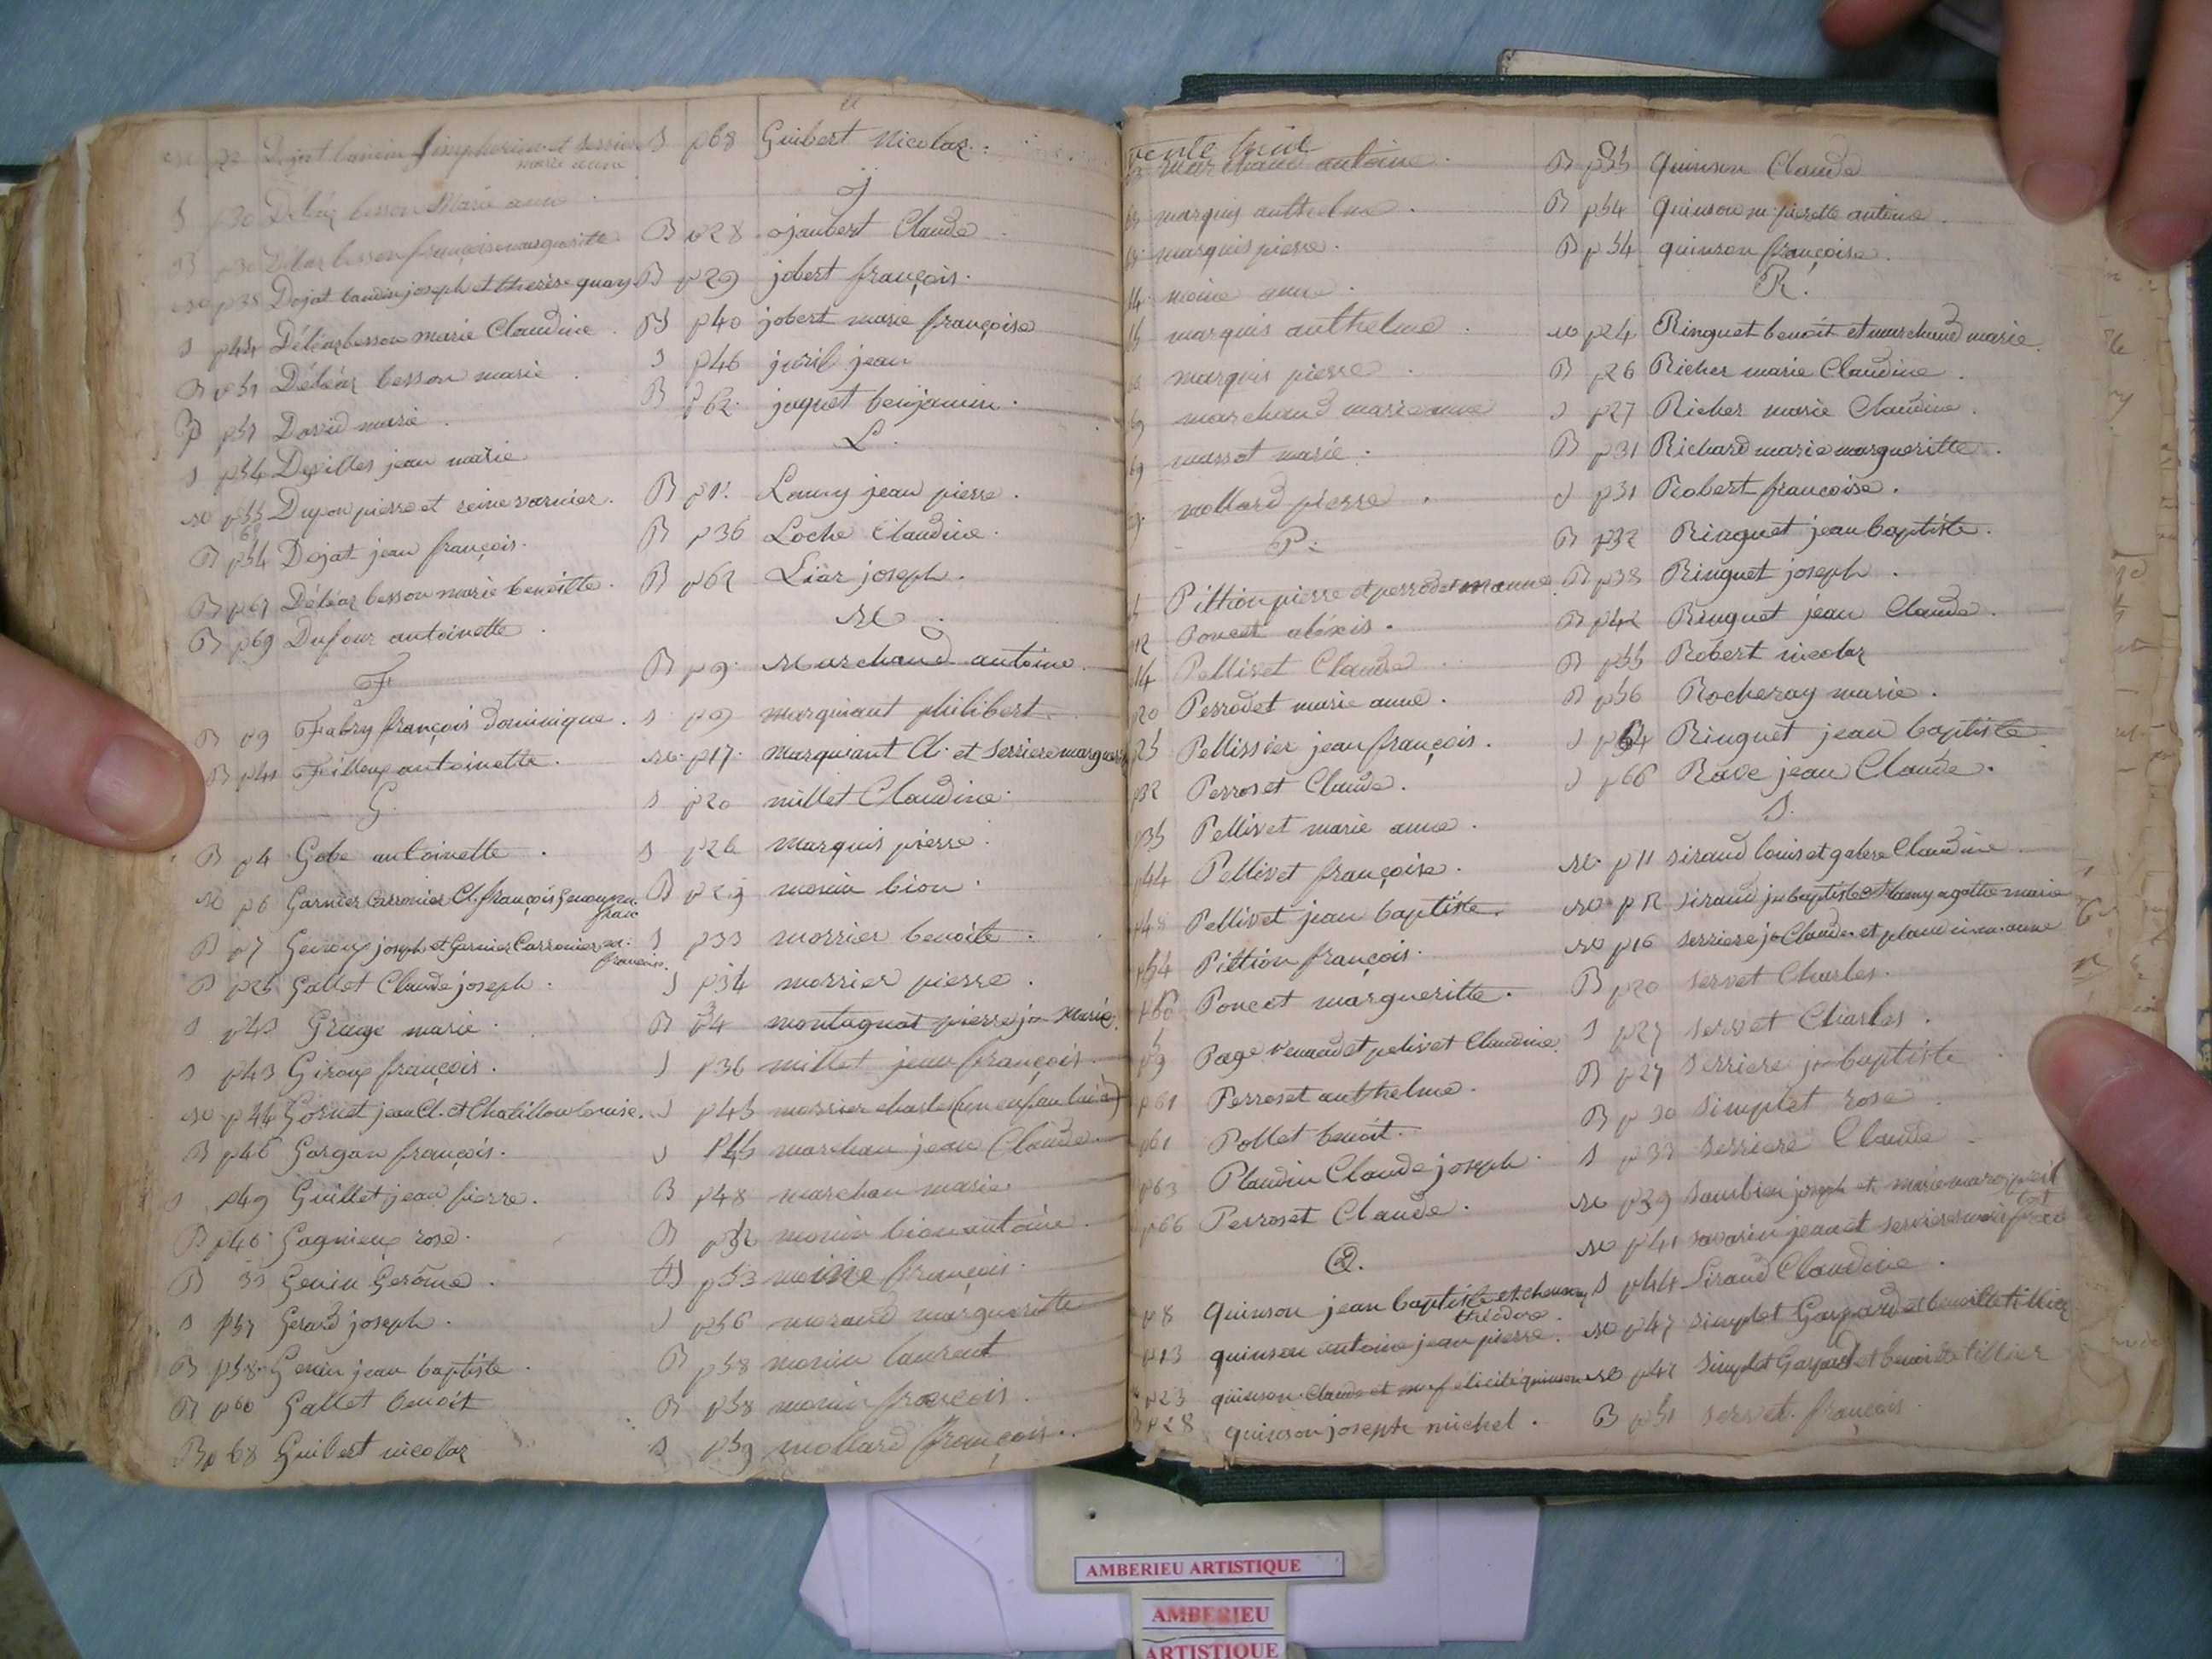 Dojat et
marie anne
S Déléaz besson Marie anne
B Déléaz besson françoise margueritte
M p38 Dojat joseph et therèse quay
S p44 Déléaz besson marie Claudine
B p51 Déléaz besson marie
B p51 David marie
S p54 Devilles jean marie
M p55 Dupon pierre et reine varnier.
B p54 Dojat jean françois.
B p67 Déléaz besson marie benoitte.
B p69 Dufour antoinette
F
B p9 Fabry françois dominique.
B p41 antoinette.
G.
B p4 Gobe antoinette.
M p6 Garnier Carronier Cl. françois
B p7 Geiroux joseph et Garnier Carronier
S p26 Gallet Claude joseph.
S p43 Grange marie.
S p43 Giroux françois.
M p44 Gornet jean Cl. et Chatillon louise.
B p46 Gargan françois.
S p49 Guillet jean pierre.
B p46 Gagnieux rose.
B 53 Genin Gerôme.
S p57 Gerard joseph.
B p58 Genin jean baptiste.
B p60 Gallet benoit
B p68 Guibert nicolaz
S p68 Guibert Nicolaz.
J
B p28 jaubert Claude
B p29 jobert françois.
B p40 jobert marie françoise
S p46 jean
B p62. jaquet benjamin.
L.
B Lamy jean pierre.
B p36 Loche Claudine.
B p62 Liar joseph.
M
B p9. Marchand antoine.
S p9 marquiant philibert
M. p17. marquiant Cl. et Serriere
S p20 millet Claudine
S p26 marquis pierre
B p29 monin bion.
S p33 morrier benoite.
S p34 morrier pierre.
B p34 montagnat pierre jn Marie.
S p36 millet jean françois.
S p45 morrier charles
S p45 marchan jean Claude
B p48 marchan marie
B p52 monin bion antoine.
B p53 moine françois.
S p56 moraud margueritte
B p58 monin laurent
B p58 monin françois.
S p59 mollard françois.
trente huit
marchand antoine.
marquis anthelme.
marquis pierre.
14. moine anne.
marquis anthelme.
marquis pierre.
69 marchand marie anne
69 massot marie.
mollard pierre.
P.
Pittion pierre et perrodet m anne.
12 Poncet aléxis.
14 Pellivet Claude
p20 Perrodet marie anne.
p25 Pellissier jean françois.
p32 Perroset Claude.
p35 Pellivet marie anne.
p44 Pellivet françoise.
p48 Pellivet jean baptiste.
p54 Pittion françois.
p60 Poncet margueritte.
Page et pelivet Claudine.
p61 Perroset anthelme.
p61 Pollet benoit.
p63 Plandin Claude joseph.
p66 Perroset Claude.
Q.
p8 quinson jean baptiste et
théodore.
p13 quinson antoine jean pierre.
p23 quinson Claude et félicité quinson
B p28 quinson joseph michel.
B p33 quinson Claude
B p54 quinson m. pierette antoine.
B p54 quinson françoise.
R.
M p24 Ringuet benoit et marchand marie.
B p26 Richer marie Claudine.
S p27 Richer marie Claudine.
B p31 Richard marie margueritte.
S p31 Robert françoise.
B p32 Ringuet jean baptiste.
B p38 Ringuet joseph.
B p42 Ringuet jean Claude.
B p55 Robert nicolaz
B p56 Rocheray marie.
S p64 Ringuet jean baptiste
S p66 Rave jean Claude.
S.
M. p11 siraud louis et Claudine
M p12 siraud jn baptiste et lamy agathe marie
M p16 serriere jn Claude et plandin m. anne
B p20 servet Charles.
S p27 servet Charles.
B p27 serriere jn baptiste
B p30 simplet rose
S p33 serriere Claude
M p39 joseph et marie
M p41 savarin jean et serriere
S p44 Siraud Claudine.
M p47 simplet Gaspard et benoitte tillier
M p47 simplet Gaspard et benoitte tillier
B p51 servet françois.
AMBERIEU ARTISTIQUE
AMBERIEU
ARTISTIQUE